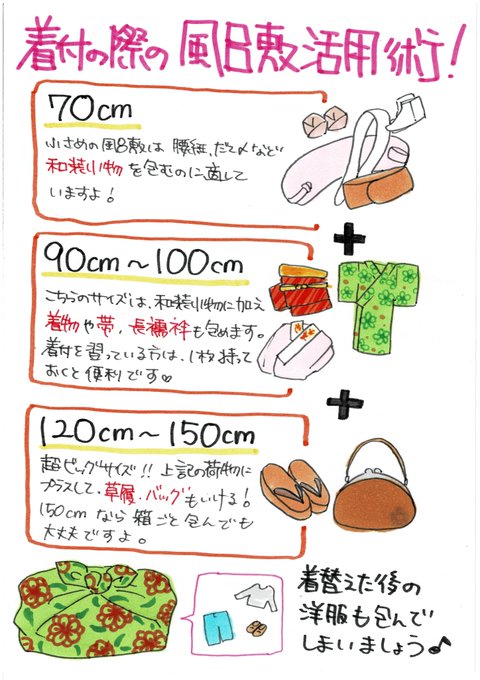 着付の際の風呂敷活用術！
70cm
小さめの風呂敷は腰紐、だて〆など
和装小物を包むのに適して
いますよ！
+
90cm～100cm
こちらのサイズは、和装小物に加え
着物や帯、長襦袢も包めます。
着付を習っている方は、1枚持って
おくと便利です♡
+
120cm～150cm
超ビッグサイズ!! 上記の荷物に
プラスして、草履、バッグもいける！
150cmなら箱ごと包んでも
大丈夫ですよ。
着替えた後の
洋服も包んで
しまいましょう♪